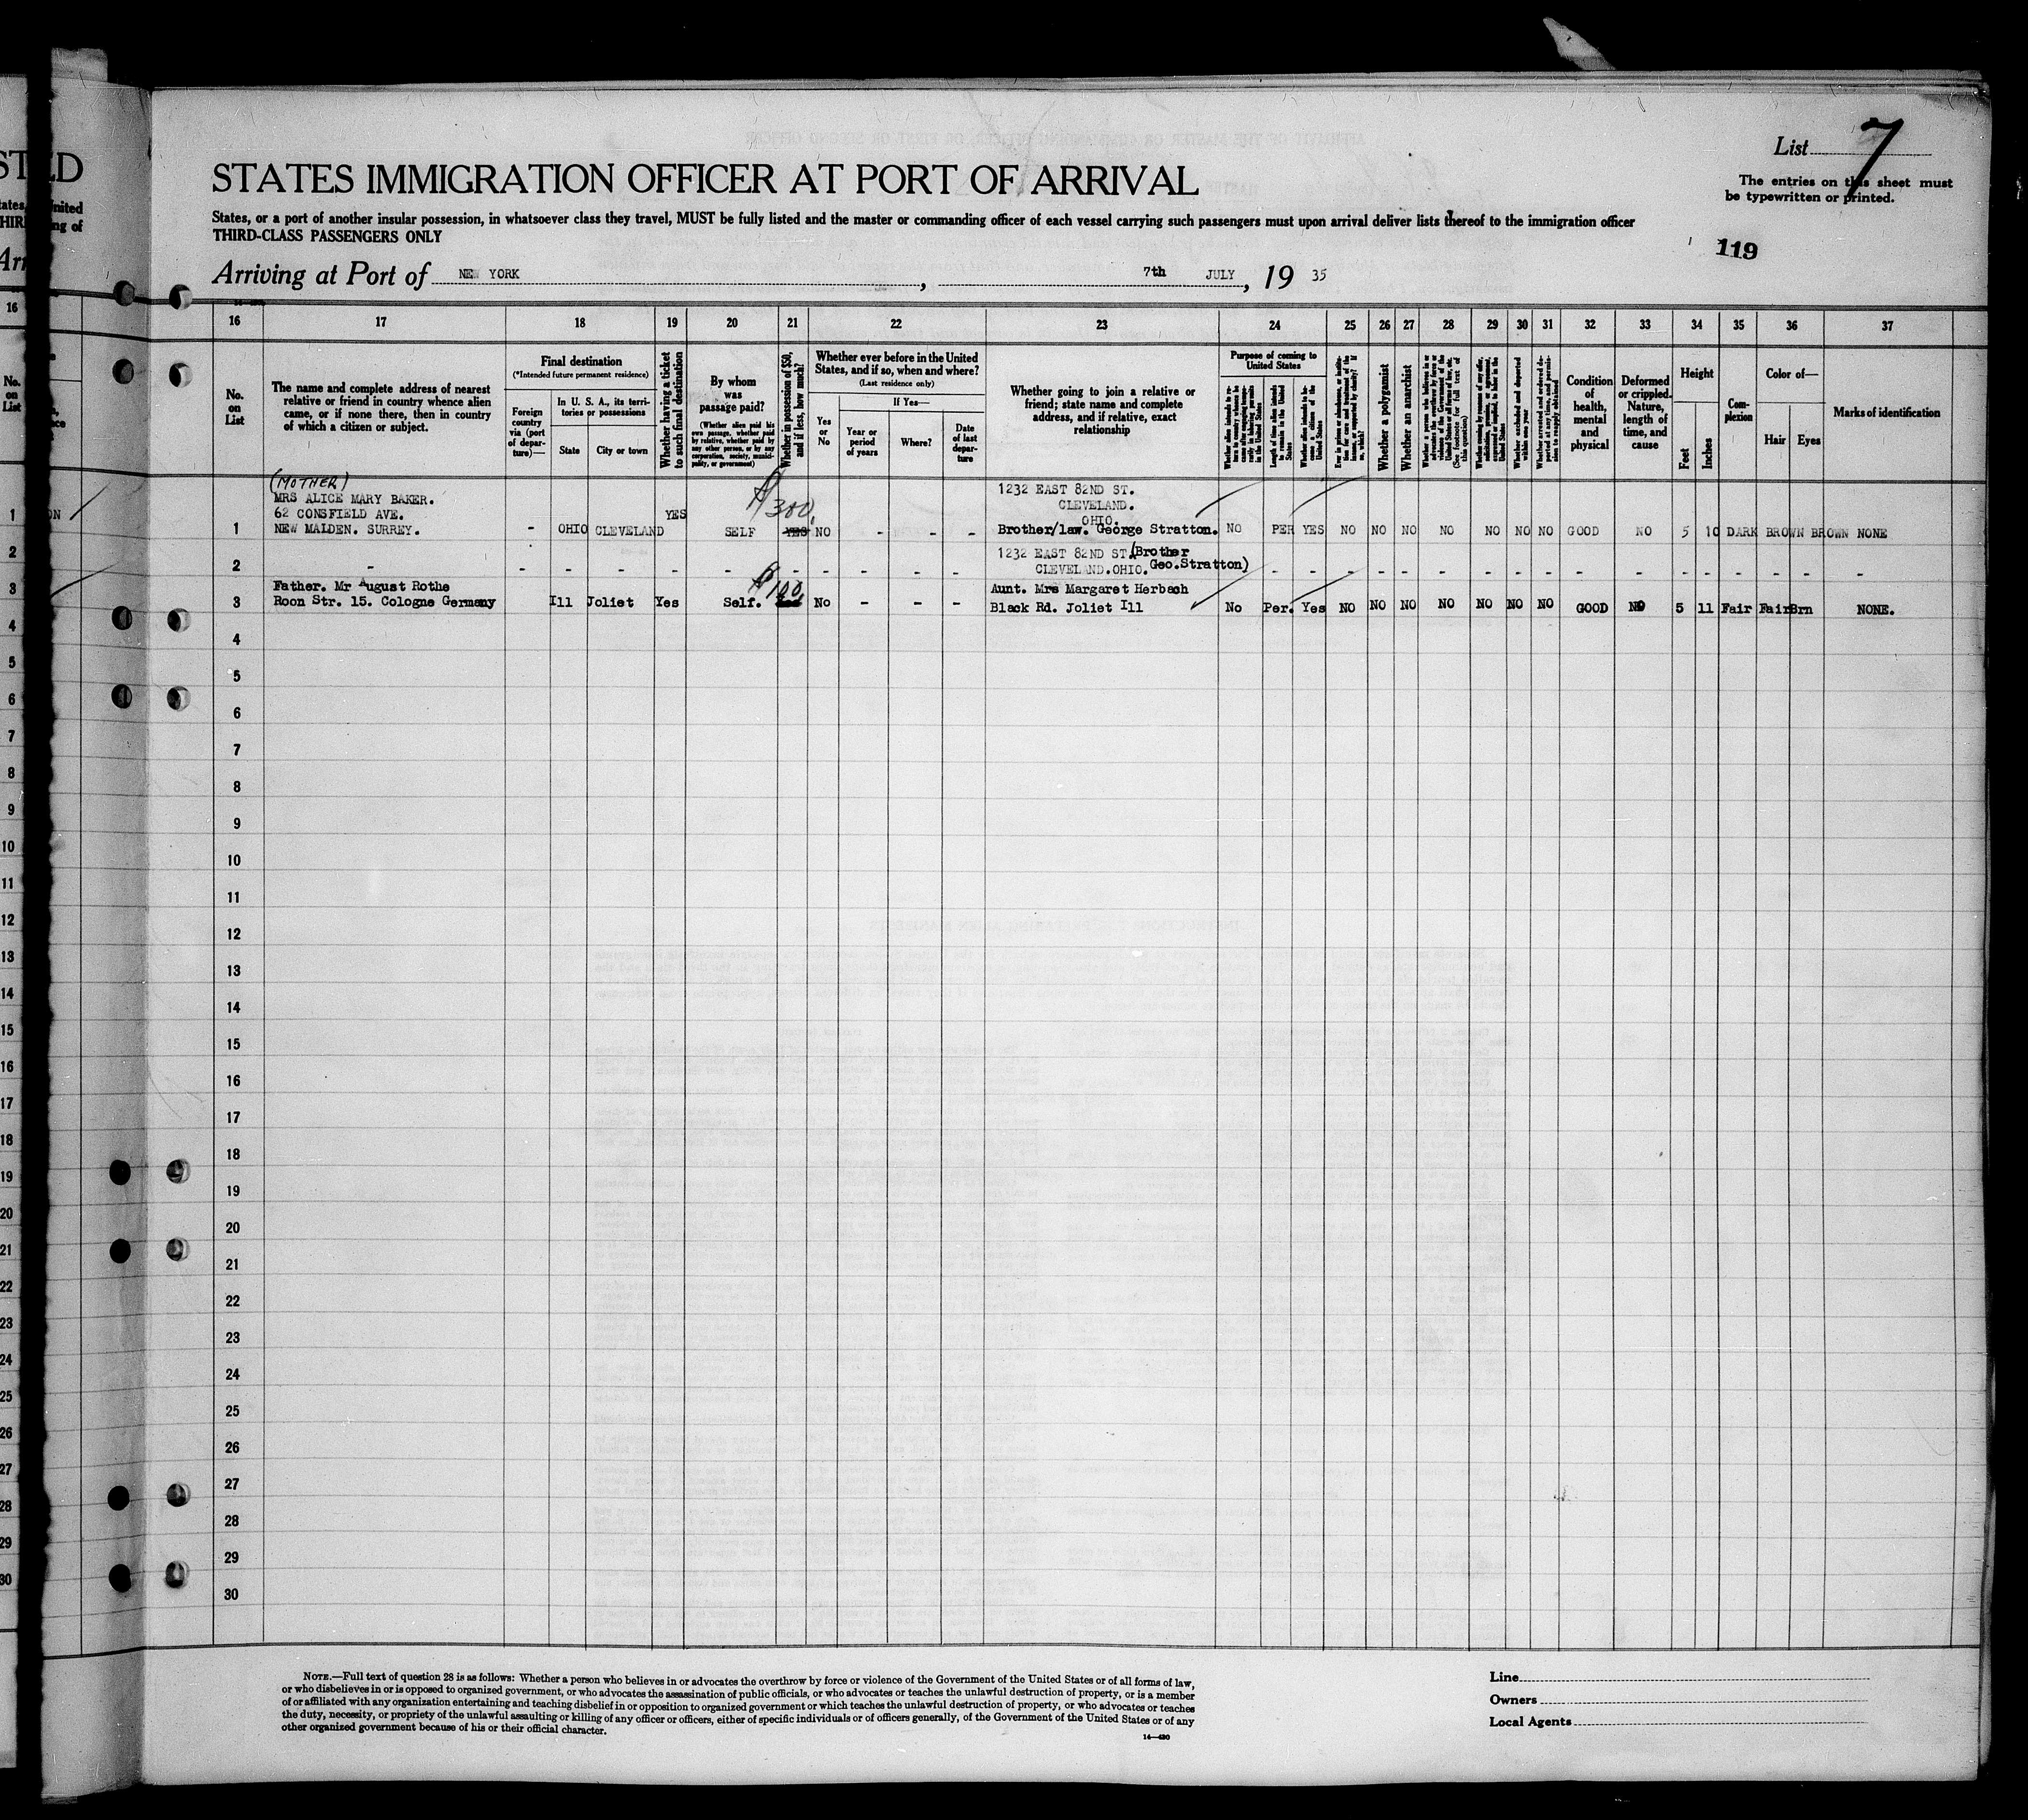 STATES IMMIGRATION OFFICER AT PORT OF ARRIVAL
List 7
The entries on this sheet must
be typewritten or printed.
States, or a port of another insular possession, in whatsoever class they travel, MUST be fully listed and the master or commanding officer of each vessel carrying such passengers must upon arrival deliver lists thereof to the immigration officer
THIRD-CLASS PASSENGERS ONLY
119
Arriving at Port of NEW YORK, 7th JULY, 19 35
16 17 18 19 20 21 22 23 24 25 26 27 28 29 30 31 32 33 34 35 36 37
No.
on
List
The name and complete address of nearest
relative or friend in country whence alien
came, or if none there, then in country
of which a citizen or subject.
Final destination
(*Intended future permanent residence)
Foreign
country
via (port
of depar-
ture)—
In U. S. A., its terri-
tories or possessions
State
City or town
Whether having a ticket
to such final destination
By whom
was
passage paid?
(Whether alien paid his
own passage, whether paid
by relative, whether paid by
any other person, or by any
corporation, society, munici-
pality, or government)
Whether in possession of $50,
and if less, how much?
Whether ever before in the United
States, and if so, when and where?
(Last residence only)
Yes
or
No
If Yes—
Year or
period
of years
Where?
Date
of last
depar-
ture
Whether going to join a relative or
friend; state name and complete
address, and if relative, exact
relationship
Purpose of coming to
United States
Length of time alien intends
to remain in the United
States
Whether alien intends to be-
come a citizen of the
United States
Whether a polygamist
Whether an anarchist
Whether excluded and deported
within one year
Condition
of
health,
mental
and
physical
Deformed
or crippled.
Nature,
length of
time, and
cause
Height
Feet
Inches
Com-
plexion
Color of—
Hair
Eyes
Marks of identification
(MOTHER)
MRS ALICE MARY BAKER.
62 CONSFIELD AVE.
NEW MALDEN. SURREY.
1 - OHIO CLEVELAND YES SELF $300. YES NO - - -
1232 EAST 82ND ST.
CLEVELAND.
OHIO.
Brother/law. George Stratton. NO PER YES NO NO NO NO NO NO NO GOOD NO 5 10 DARK BROWN BROWN NONE
2 - - - - - - - - - - -
1232 EAST 82ND ST. (Brother
CLEVELAND.OHIO. Geo.Stratton) - - - - - - - - - - - - - - - - - -
Father. Mr August Rothe
3 Roon Str. 15. Cologne Germany Ill Joliet Yes Self. $100. No - - -
Aunt. Mrs Margaret Herbach
Black Rd. Joliet Ill No Per. Yes NO NO NO NO NO NO NO GOOD NO 5 11 Fair Fair Brn NONE.
4
5
6
7
8
9
10
11
12
13
14
15
16
17
18
19
20
21
22
23
24
25
26
27
28
29
30
NOTE.—Full text of question 28 is as follows: Whether a person who believes in or advocates the overthrow by force or violence of the Government of the United States or of all forms of law,
or who disbelieves in or is opposed to organized government, or who advocates the assassination of public officials, or who advocates or teaches the unlawful destruction of property, or is a member
of or affiliated with any organization entertaining and teaching disbelief in or opposition to organized government or which teaches the unlawful destruction of property, or who advocates or teaches
the duty, necessity, or propriety of the unlawful assaulting or killing of any officer or officers, either of specific individuals or of officers generally, of the Government of the United States or of any
other organized government because of his or their official character.
14—430
Line
Owners
Local Agents